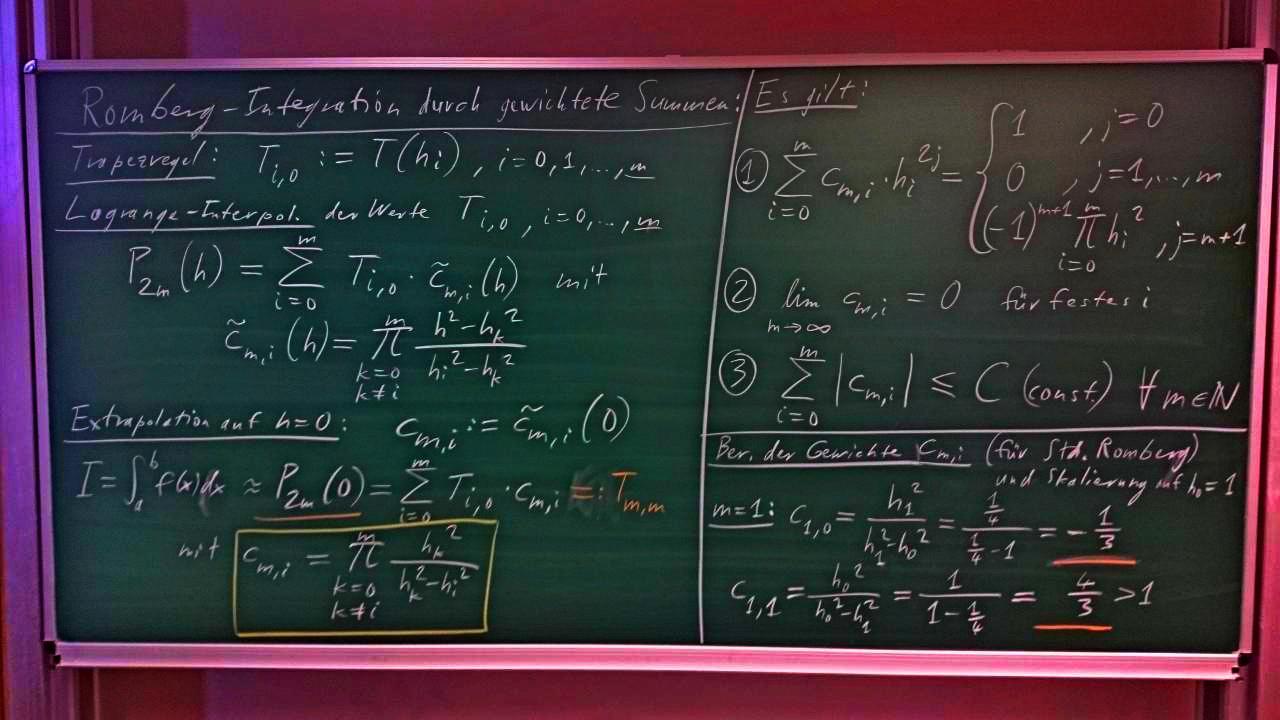 Romberg-Integration durch gewichtete Summen:
Trapezregel: T_{i,0} := T(h_i), i=0,1,...,m
Lagrange-Interpol. der Werte T_{i,0}, i=0,...,m
P_{2m}(h) = ∑_{i=0}^{m} T_{i,0} · c̃_{m,i}(h) mit
c̃_{m,i}(h) = ∏_{k=0, k≠i}^{m} (h² - h_k²)/(h_i² - h_k²)
Extrapolation auf h=0: c_{m,i} := c̃_{m,i}(0)
I = ∫_a^b f(x)dx ≈ P_{2m}(0) = ∑_{i=0}^{m} T_{i,0} · c_{m,i} =: T_{m,m}
mit c_{m,i} = ∏_{k=0, k≠i}^{m} h_k²/(h_k² - h_i²)
Es gilt:
① ∑_{i=0}^{m} c_{m,i} · h_i^{2j} = { 1 , j=0
0 , j=1,...,m
(-1)^{m+1} ∏_{i=0}^{m} h_i² , j=m+1
② lim_{m→∞} c_{m,i} = 0 für festes i
③ ∑_{i=0}^{m} |c_{m,i}| ≤ C (const.) ∀ m∈ℕ
Ber. der Gewichte c_{m,i} (für Std. Romberg)
und Skalierung auf h_0 = 1
m=1: c_{1,0} = h_1²/(h_1² - h_0²) = (1/4)/(1/4 - 1) = -1/3
c_{1,1} = h_0²/(h_0² - h_1²) = 1/(1 - 1/4) = 4/3 > 1